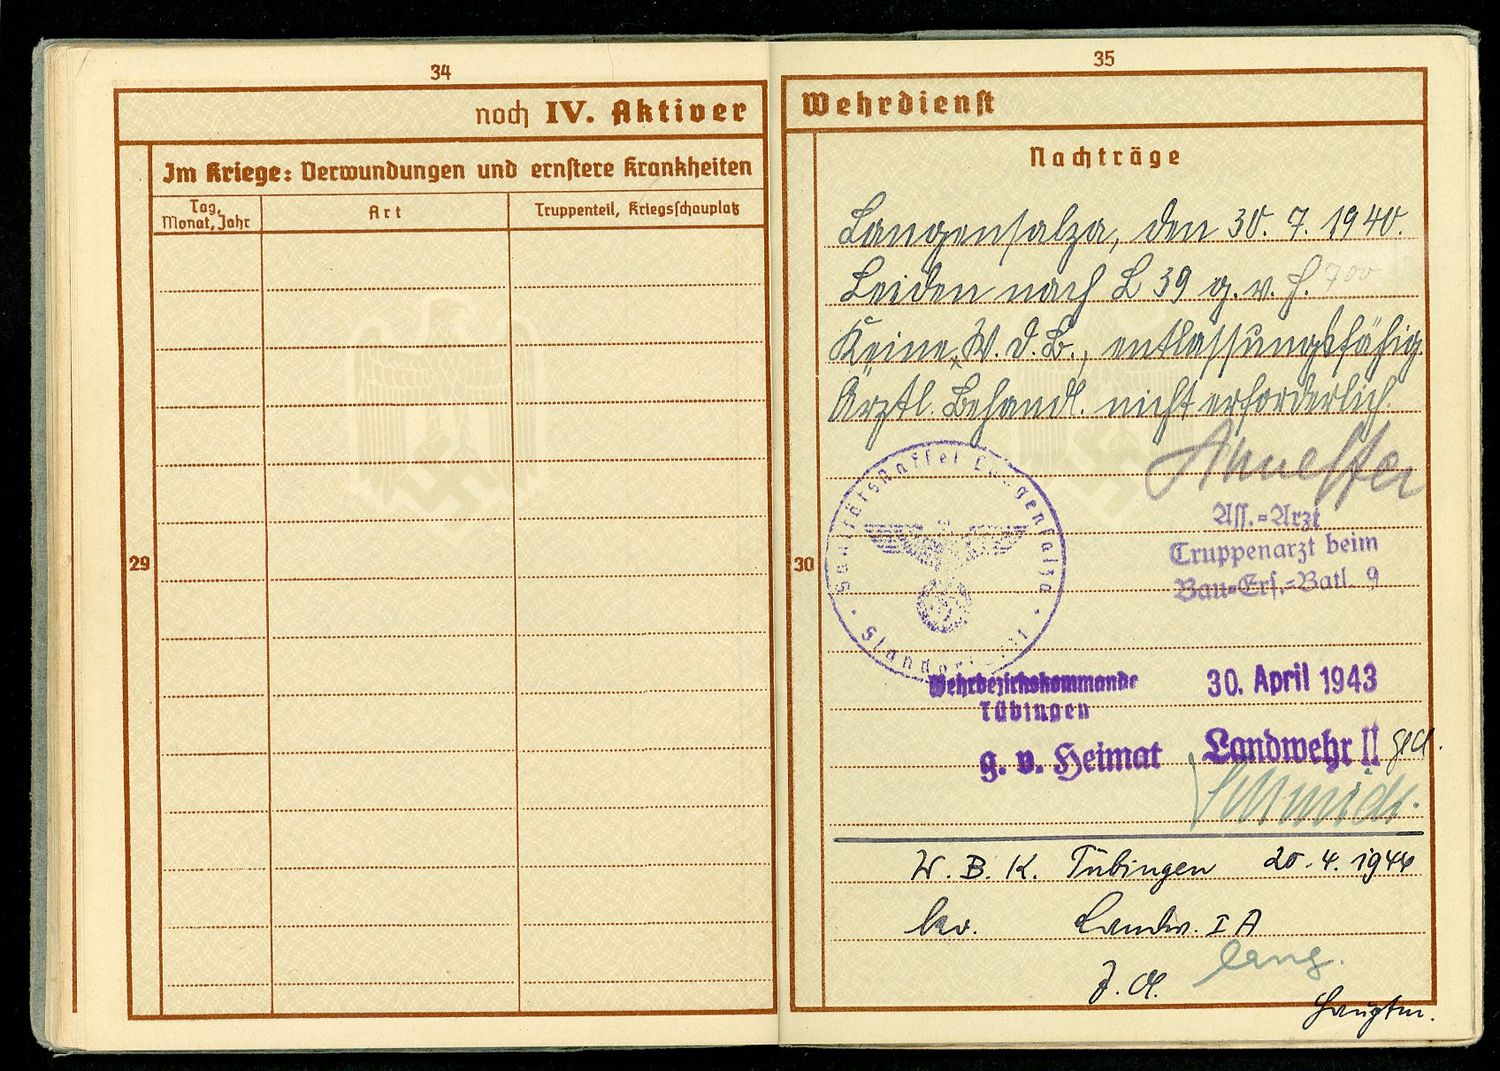 34
noch IV. Aktiver
Im Kriege: Verwundungen und ernstere Krankheiten
Tag, Monat, Jahr
Art
Truppenteil, Kriegsschauplatz
29
35
Wehrdienst
Nachträge
30
Langensalza, den 30. 7. 1940.
Leiden nach L 39 g. v. H.
Keine W. d. B., entlassungsfähig.
Ärztl. Behandl. nicht erforderlich.
Ass.=Arzt
Truppenarzt beim
Bau=Ers.=Batl. 9
Sanitätsstaffel Langensalza
Wehrbezirkskommando
Tübingen
30. April 1943
g. v. Heimat
Landwehr II
W. B. K. Tübingen 20. 4. 1944
kv. Landw. I A
J. A.
Hauptm.